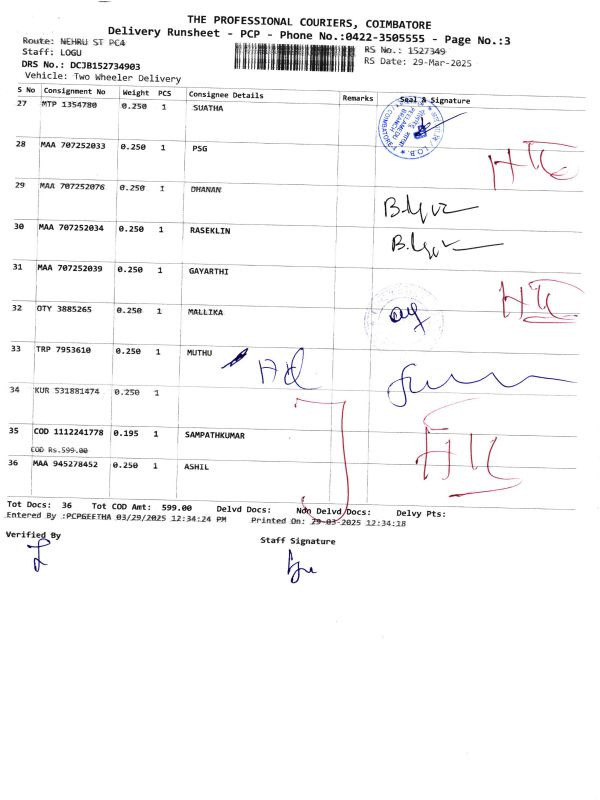 THE PROFESSIONAL COURIERS, COIMBATORE
Delivery Runsheet - PCP - Phone No.:0422-3505555 - Page No.:3
Route: NEHRU ST PC4
RS No.: 1527349
Staff: LOGU
RS Date: 29-Mar-2025
DRS No.: DCJB152734903
Vehicle: Two Wheeler Delivery
S No Consignment No Weight PCS Consignee Details Remarks Seal & Signature
27 MTP 1354780 0.250 1 SUATHA
28 MAA 707252033 0.250 1 PSG
29 MAA 707252076 0.250 1 DHANAN
30 MAA 707252034 0.250 1 RASEKLIN
31 MAA 707252039 0.250 1 GAYARTHI
32 OTY 3885265 0.250 1 MALLIKA
33 TRP 7953610 0.250 1 MUTHU
34 KUR 531881474 0.250 1
35 COD 1112241778 0.195 1 SAMPATHKUMAR
COD Rs.599.00
36 MAA 945278452 0.250 1 ASHIL
Tot Docs: 36 Tot COD Amt: 599.00 Delvd Docs: Non Delvd Docs: Delvy Pts:
Entered By :PCPGEETHA 03/29/2025 12:34:24 PM Printed On: 29-03-2025 12:34:18
Verified By
Staff Signature